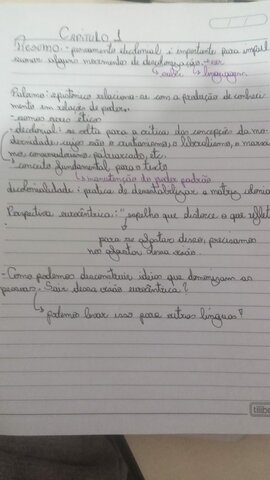 CAPÍTULO 1
Resumo: - pensamento decolonial é importante para impul
sionar alguns movimentos de descolonização → ser
↳ saber ↳ linguagem
Palavras: epistêmico relaciona-se com a produção de conheci
mento em relação de poder.
- somos seres éticos
- decolonial: se volta para a crítica das concepções da mo
dernidade cujas são o cristianismo, o liberalismo, o marxis
mo, conservadorismo, patriarcado, etc.
↳ conceito fundamental para o texto
↳ manutenção do poder padrão
decolonialidade: prática de desestabilizar a matriz colonial
Perspectiva eurocêntrica: "espelho que distorce o que reflete
↓
para se afastar disso, precisamos
nos afastar dessa visão.
- Como podemos desconstruir ideias que dominaram as
pessoas - Sair dessa visão eurocêntrica?
↳ podemos levar isso para outras línguas?
tilibra